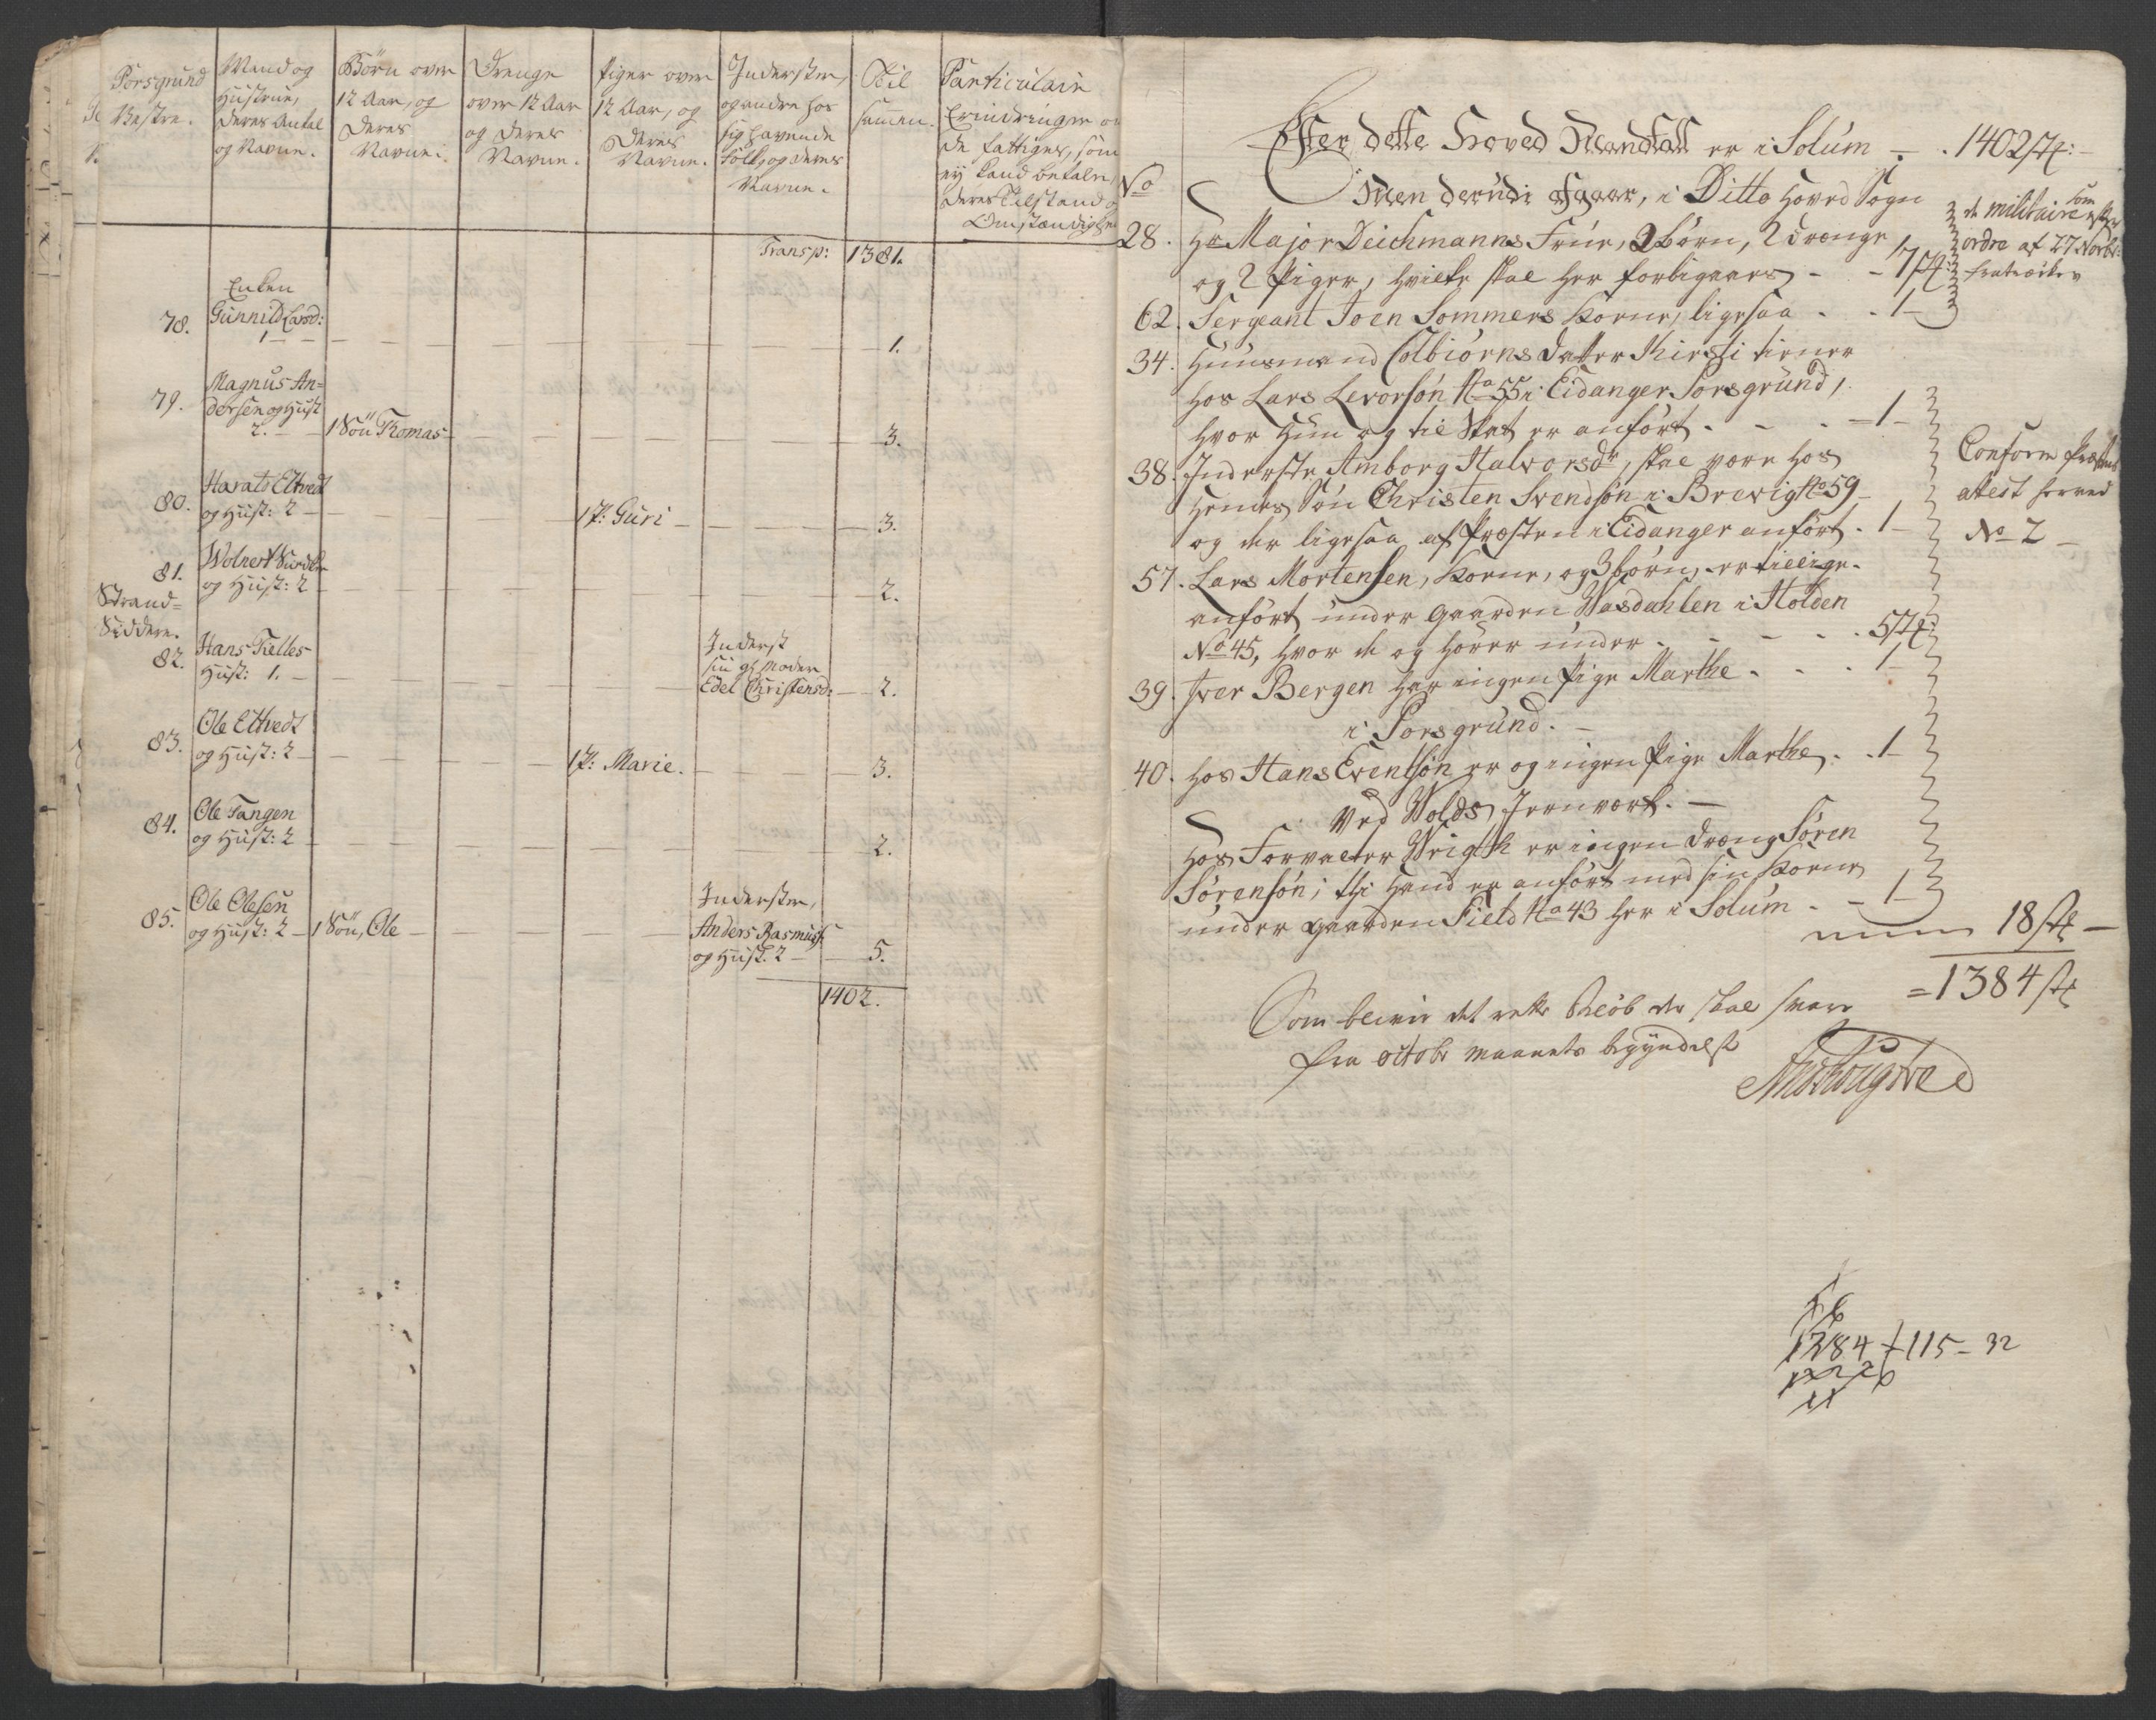 Porsgrund
Vestre.
Mand og
Hustrue,
deres Antal
og Navne.
Börn over
12 Aar, og
deres
Navne.
Drenge
over 12 Aar
og deres
Navne.
Piger over
12 Aar, og
deres
Navne.
Inderster,
og andre hos
sig havende
folk, og deres
Navne.
Til
sammen.
Particulaire
Erindringer om
de fattiges, som
ej kand betale,
deres Tilstand o
Omstændighe
Transp: 1381.
Enken
78. Gunnild Larsd:
1 — 1.
Magnus An=
79. dersen og Hust
2. — 1 Sön Thomas — 3.
80. Harals Eltvedt
og Hust: 2 — 1 P: Guri — 3.
81. Wolvert
og Hust: 2 — 2.
Strand=
Siddere.
82. Hans Tielles
Hust: 1. —
Inderst
sin gl Moder
Edel Christensd: — 2.
83. Ole Eltvedt
og Hust: 2 — 1 P: Marie. — 3.
84. Ole Tangen
og Hust: 2 — 2.
85. Ole Olesen
og Hust: 2 — 1 Sön, Ole —
Inderster,
Anders Rasmuss:
og Hust. 2 — 5.
1402.
Efter dette Hoved Mandtall er i Solum — . 1402 st: —
Men derudi afgaar, i Ditto Hoved Sogn
No
28. Hr Major Deichmanns Frue, 2 börn, 2 drenge
og 2 Piger, hvilke skal her forbigaaes — 7 st:
62. Sergeant Joen Sommers Kone, ligesaa . . 1 —
de militaire som efter
ordre af 27 Novbr:
fratrækkes
34. Huusmand Colbiörns datter Kirsti tiener
hos Lars Levorsön No 55 i Eidanger Porsgrund,
hvor hun og til Skat er anfört . — . — 1 —
38. Inderste Amborg Halvorsdr, skal være hos
hendes Sön Christen Svendsön i Brevig No 59
og der ligesaa af Præsten i Eidanger anfört . 1 —
Conform Præstens
atest herved
No 2 —
57. Lars Mortensen, Kone, og 3 börn, er tillige
anfört under gaarden Wasdahlen i Holden
No 45, hvor de og hörer under . — — . . 5 st:
39. Iver Bergen har ingen Pige Marthe . . . 1 —
i Porsgrund. —
40. Hos Hans Evensön er og ingen Pige Marthe . . 1 —
Ved Wolds Jernverk. —
Hos Forvalter Wrigth er ingen dreng Sören
Sörensön; thi hand er anfört med sin Kone
under gaarden Field No 43 her i Solum . — 1 —
18 st —
= 1384 st
Som blever det rette Belöb der skal svare
fra octobr maanets begyndelse
1384 ƒ 115 – 32